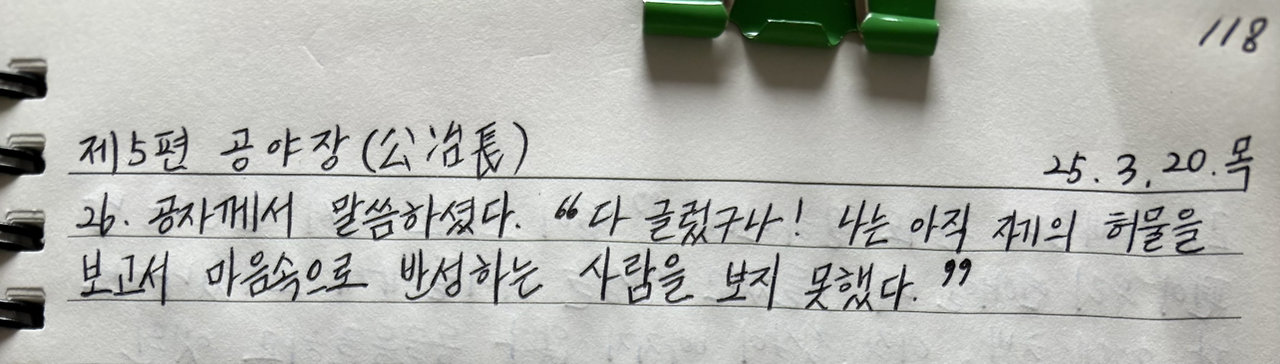 118
제5편 공야장(公冶長)
25.3.20.목
26. 공자께서 말씀하셨다. “다 글렀구나! 나는 아직 자기의 허물을
보고서 마음속으로 반성하는 사람을 보지 못했다.”